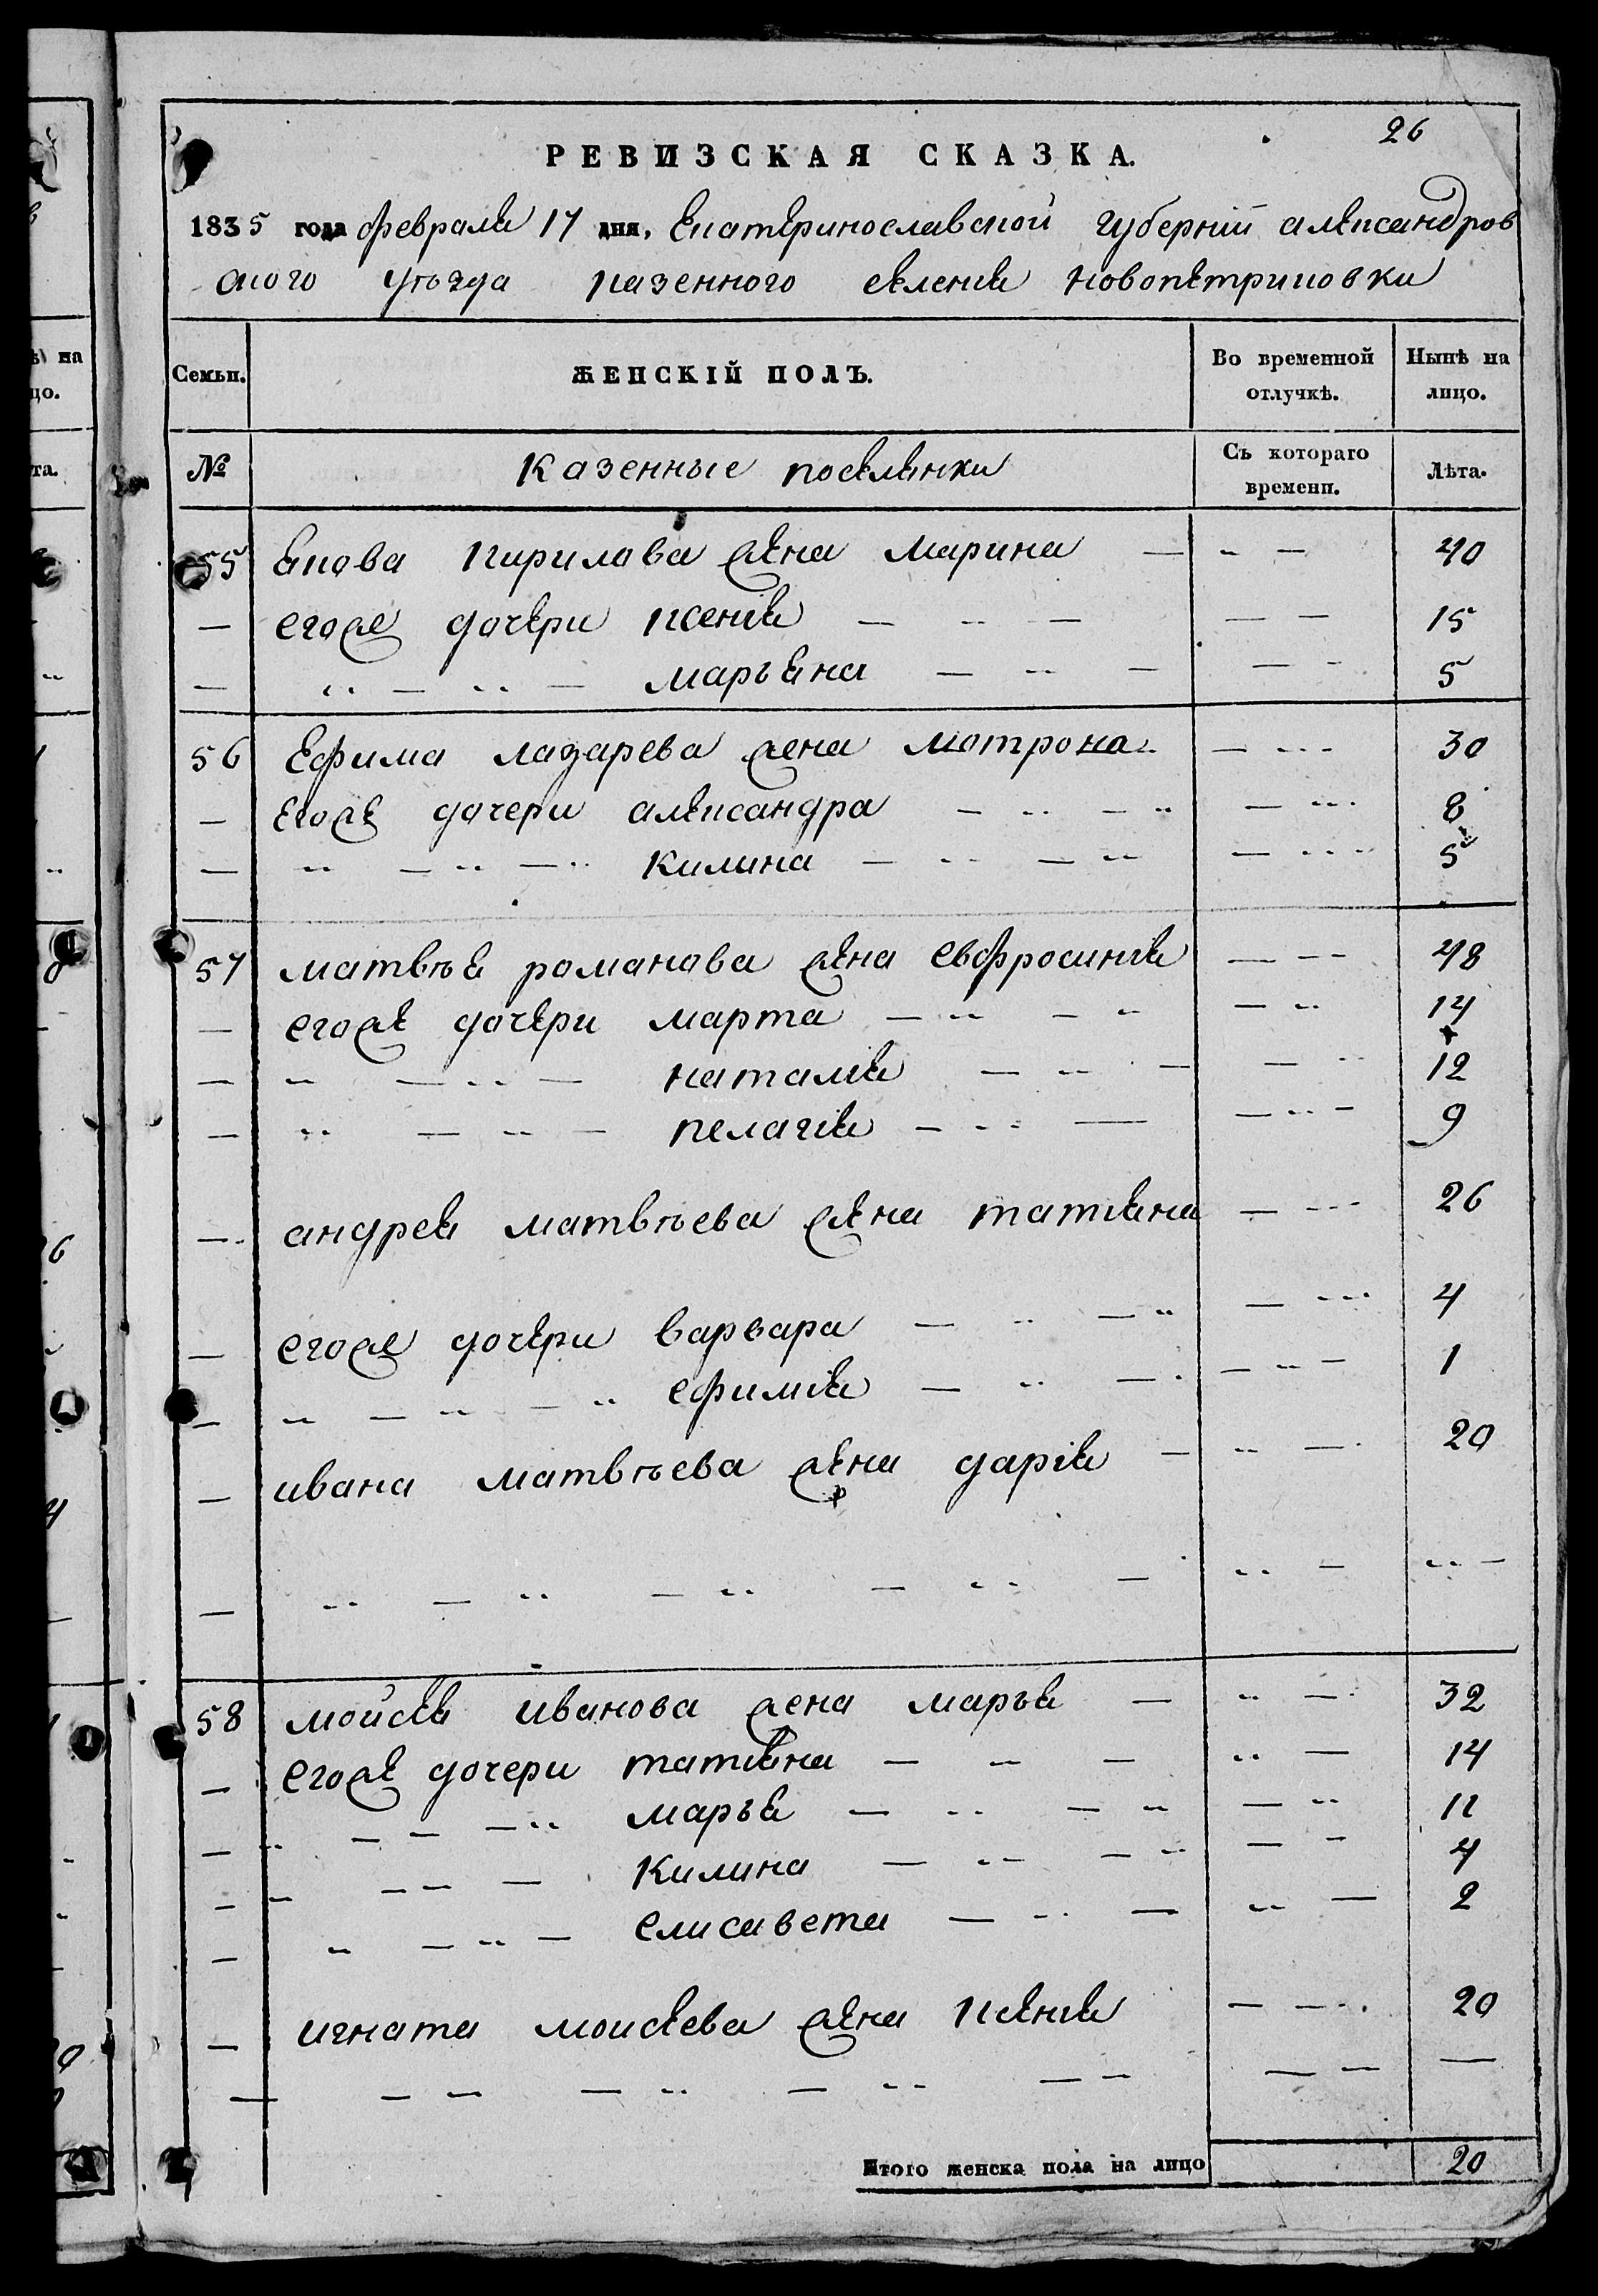 26
РЕВИЗСКАЯ СКАЗКА.
1835 года февраля 17 дня, Екатеринославской губерніи александров
ского уѣзда казенного селенія новопетриковки
Семьи. ЖЕНСКІЙ ПОЛЪ. Во временной отлучкѣ. Нынѣ на лицо.
№ Казенные поселянки Съ котораго времени. Лѣта.
55 Якова кирилова жена Марина 40
егоже дочери ксенія 15
марьяна 5
56 Ефима лазарева жена мотрона 30
егоже дочери александра 8
Килина 5
57 матвѣя романова жена евфросинія 48
егоже дочери марта 14
наталія 12
пелагія 9
андрея матвѣева жена татіяна 26
егоже дочери варвара 4
ефимія 1
ивана матвѣева жена дарія 20
58 мойсея иванова жена марья 32
егоже дочери татіяна 14
марья 11
Килина 4
елисавета 2
игната моисеева жена ксенія 20
Итого женска пола на лицо 20